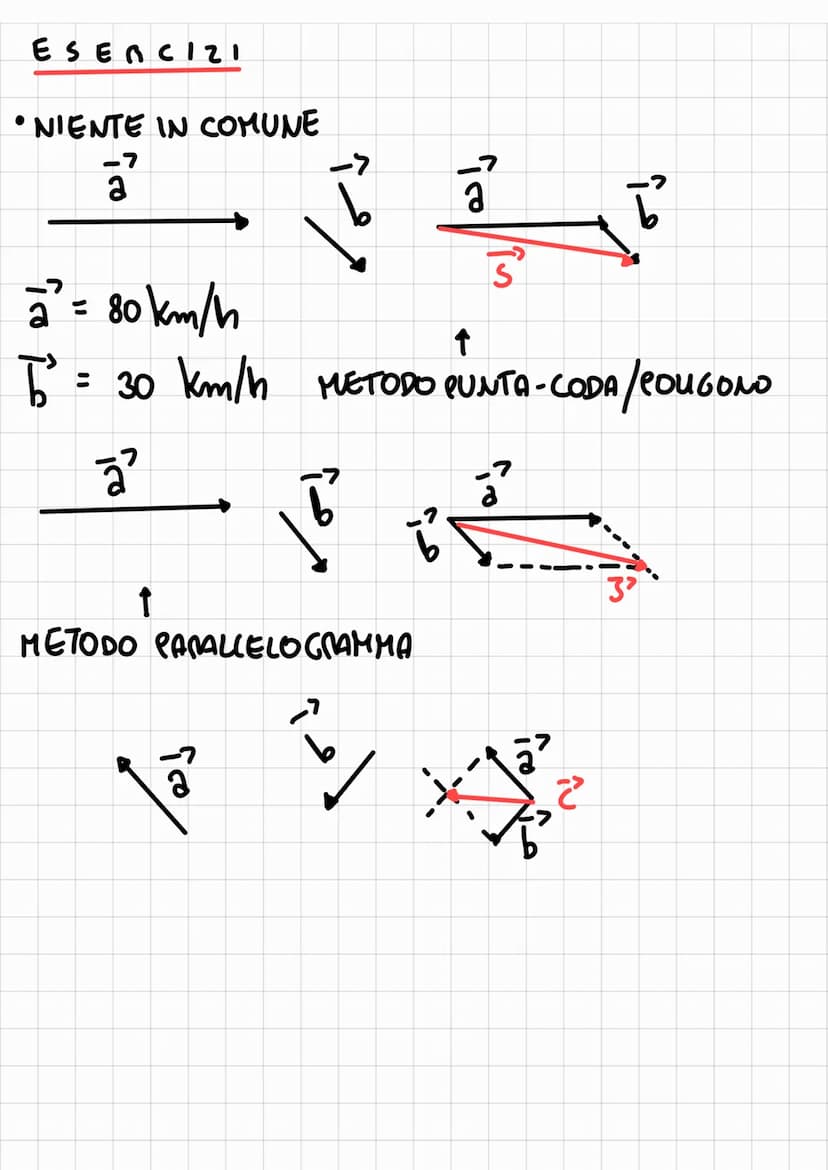 ESERCIZI
• NIENTE IN COMUNE
a⃗ b⃗ a⃗ b⃗
s⃗
a⃗ = 80 km/h
↑
b⃗ = 30 km/h METODO PUNTA-CODA/POLIGONO
a⃗ b⃗ a⃗
b⃗
↑
METODO PARALLELOGRAMMA
a⃗ b⃗ a⃗
c⃗
b⃗